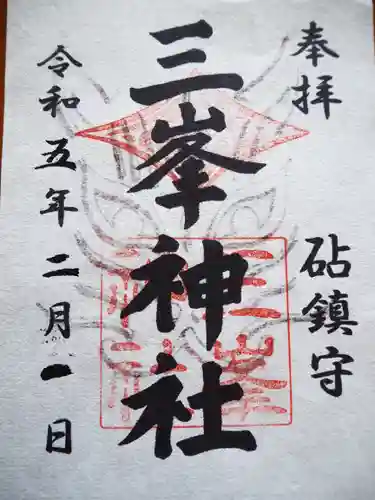 奉拝
砧鎮守
三峯神社
令和五年二月一日